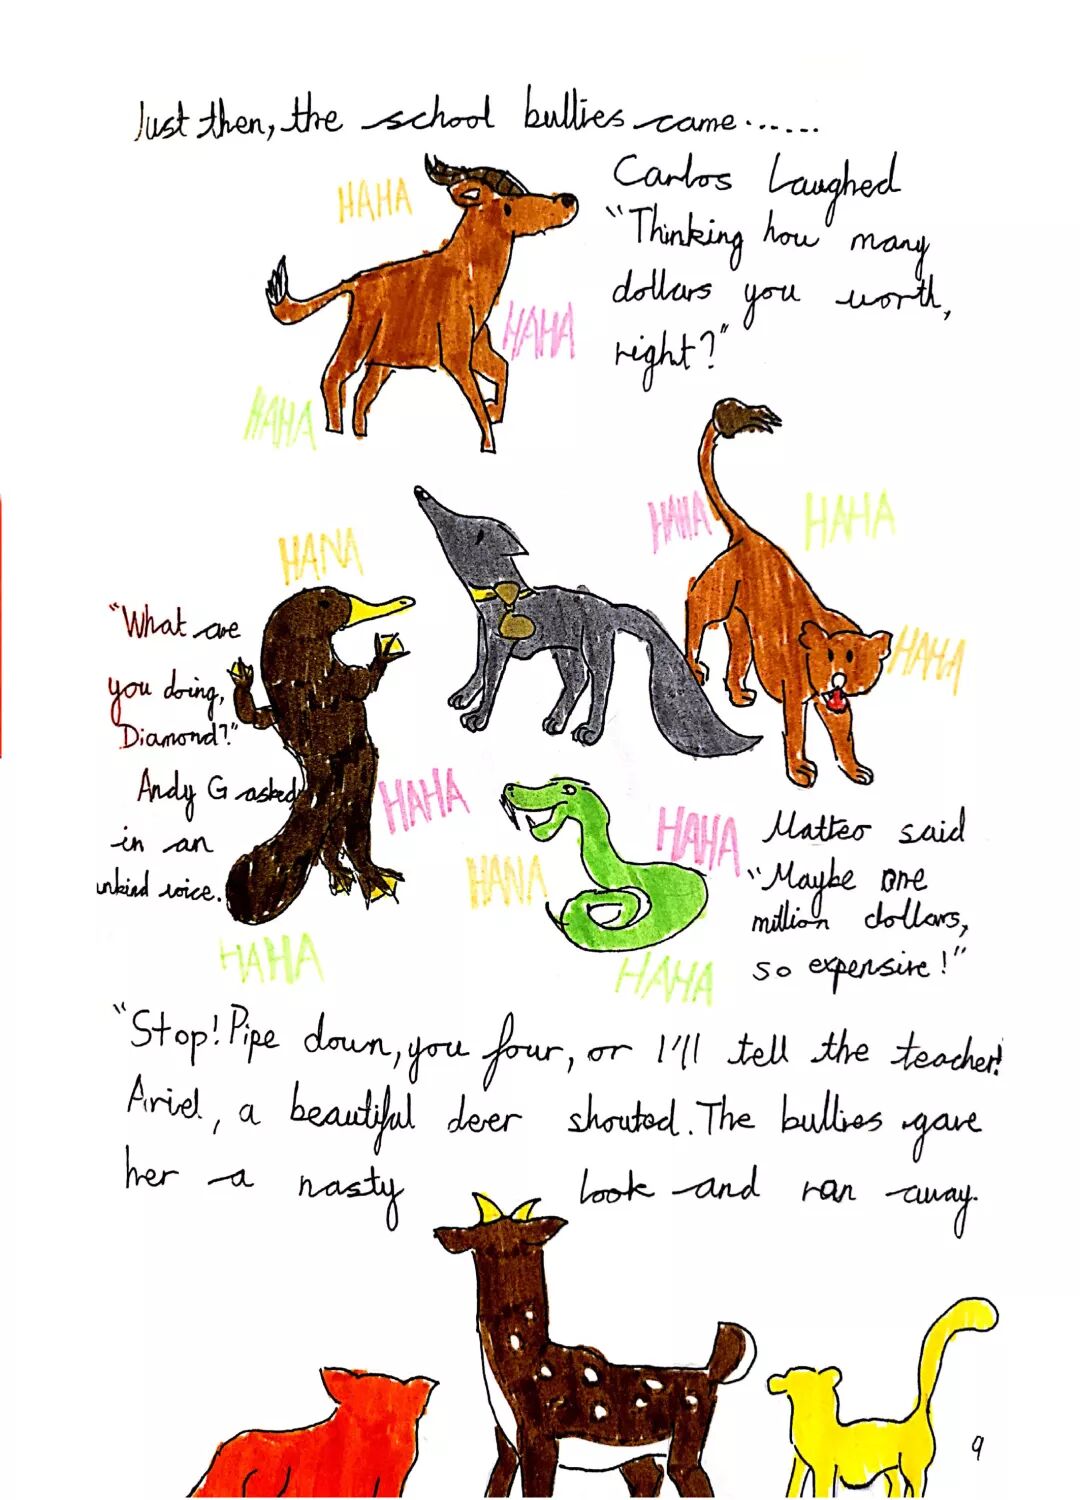 Just then, the school bullies came......
HAHA
Carlos Laughed
"Thinking how many
dollars you worth,
right?"
HAHA
HAHA
HAHA
HAHA
HANA
"What are
you doing,
Diamond?"
Andy G asked
in an
unkind voice.
HAHA
HAHA
HAHA
HANA
Matteo said
"Maybe one
million dollars,
so expensive!"
HAHA
HAHA
"Stop! Pipe down, you four, or I'll tell the teacher!
Ariel, a beautiful deer shouted. The bullies gave
her a nasty look and ran away.
9